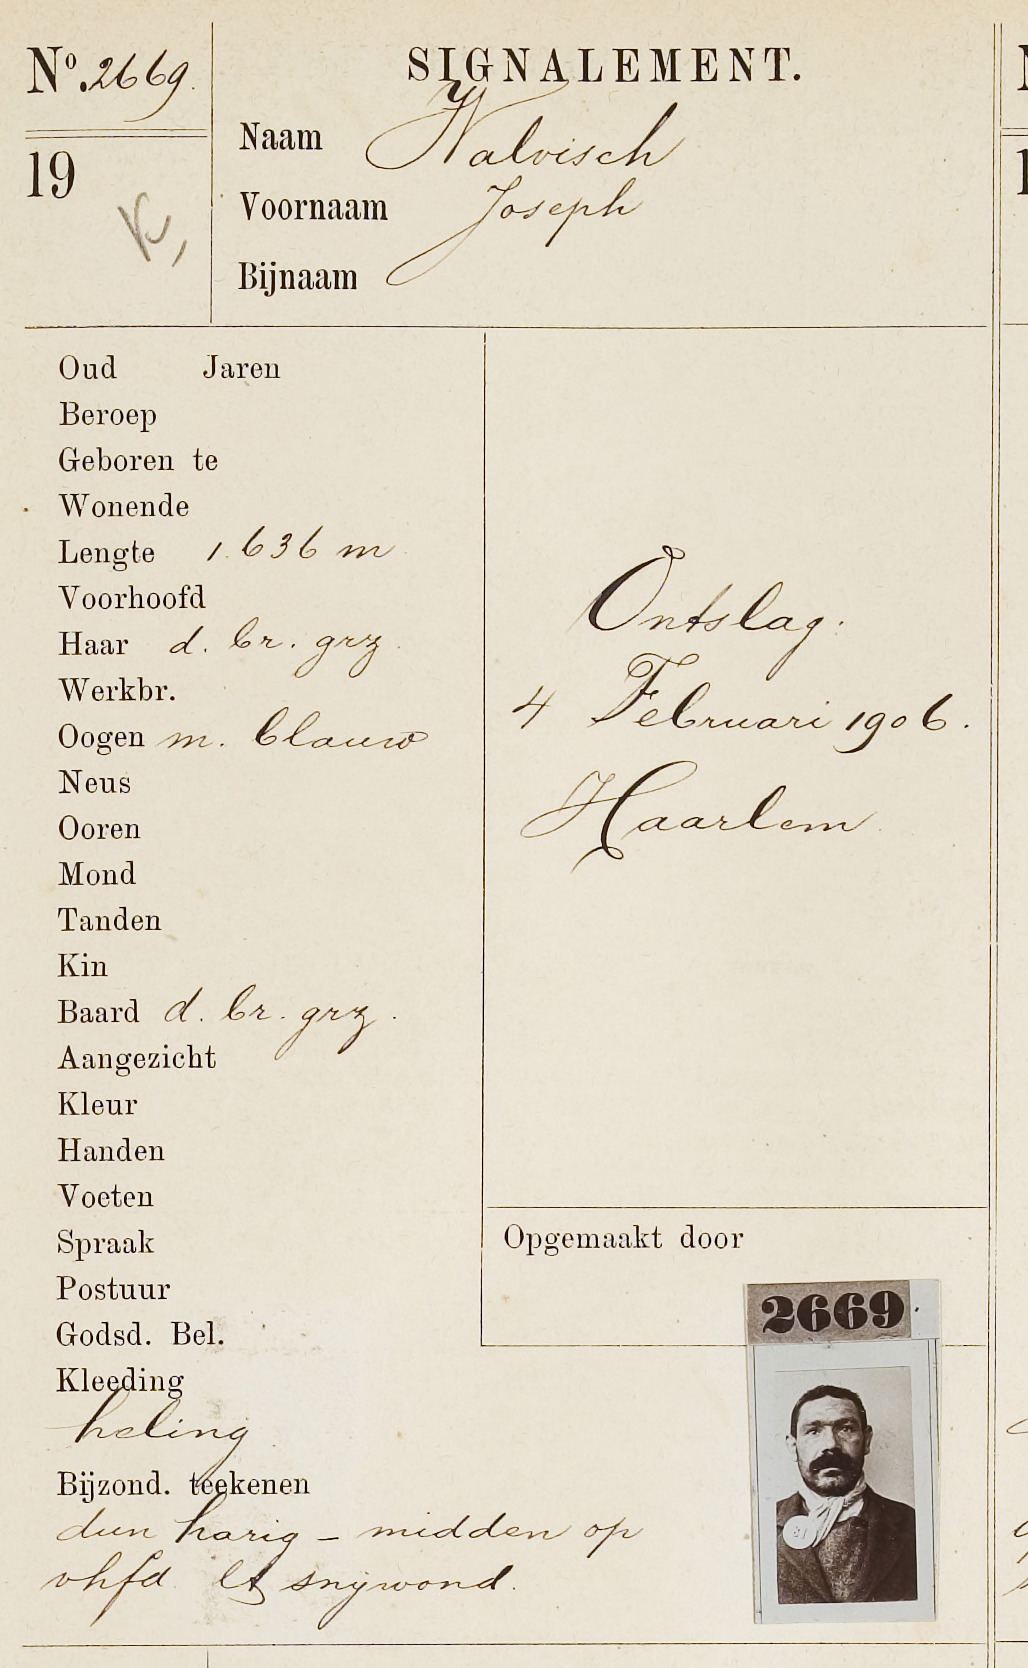 No. 2669.
19
K,
SIGNALEMENT.
Naam Walvisch
Voornaam Joseph
Bijnaam
Oud Jaren
Beroep
Geboren te
Wonende
Lengte 1.636 m
Voorhoofd
Haar d. br. grz.
Werkbr.
Oogen m. blauw
Neus
Ooren
Mond
Tanden
Kin
Baard d. br. grz.
Aangezicht
Kleur
Handen
Voeten
Spraak
Postuur
Godsd. Bel.
Kleeding
heling
Bijzond. teekenen
dun harig - midden op
vhfd lt snijwond.
Ontslag.
4 Februari 1906.
Haarlem
Opgemaakt door
2669